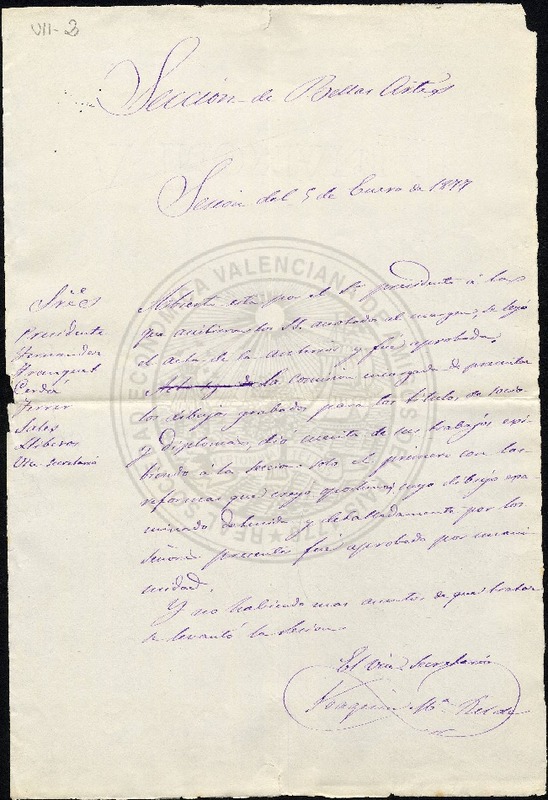 VII-2
Sección de Bellas Artes
Sesión del 5 de Enero de 1877
Sres
Presidente
Hernandez
Franquet
Cerdá
Ferrer
Sales
Lliberos
Vice Secretario
Abierta esta por el Sr presidente á la
que asistieron los SS. anotados al margen, se leyó
el acta de la anterior y fué aprobada.
la comision encargada de presentar
los dibujos grabados para los titulos de socio
y diplomas, dió cuenta de sus trabajos exi
biendo á la seccion solo el primero con las
reformas que creyo oportunas, cuyo dibujo exa
minado detenida y detalladamente por los
señores presentes fué aprobado por unani
midad.
Y no habiendo mas asuntos de que tratar
se levantó la sesion.
El Vice Secretario
Joaquin Mª
REAL SOCIEDAD VALENCIANA DE